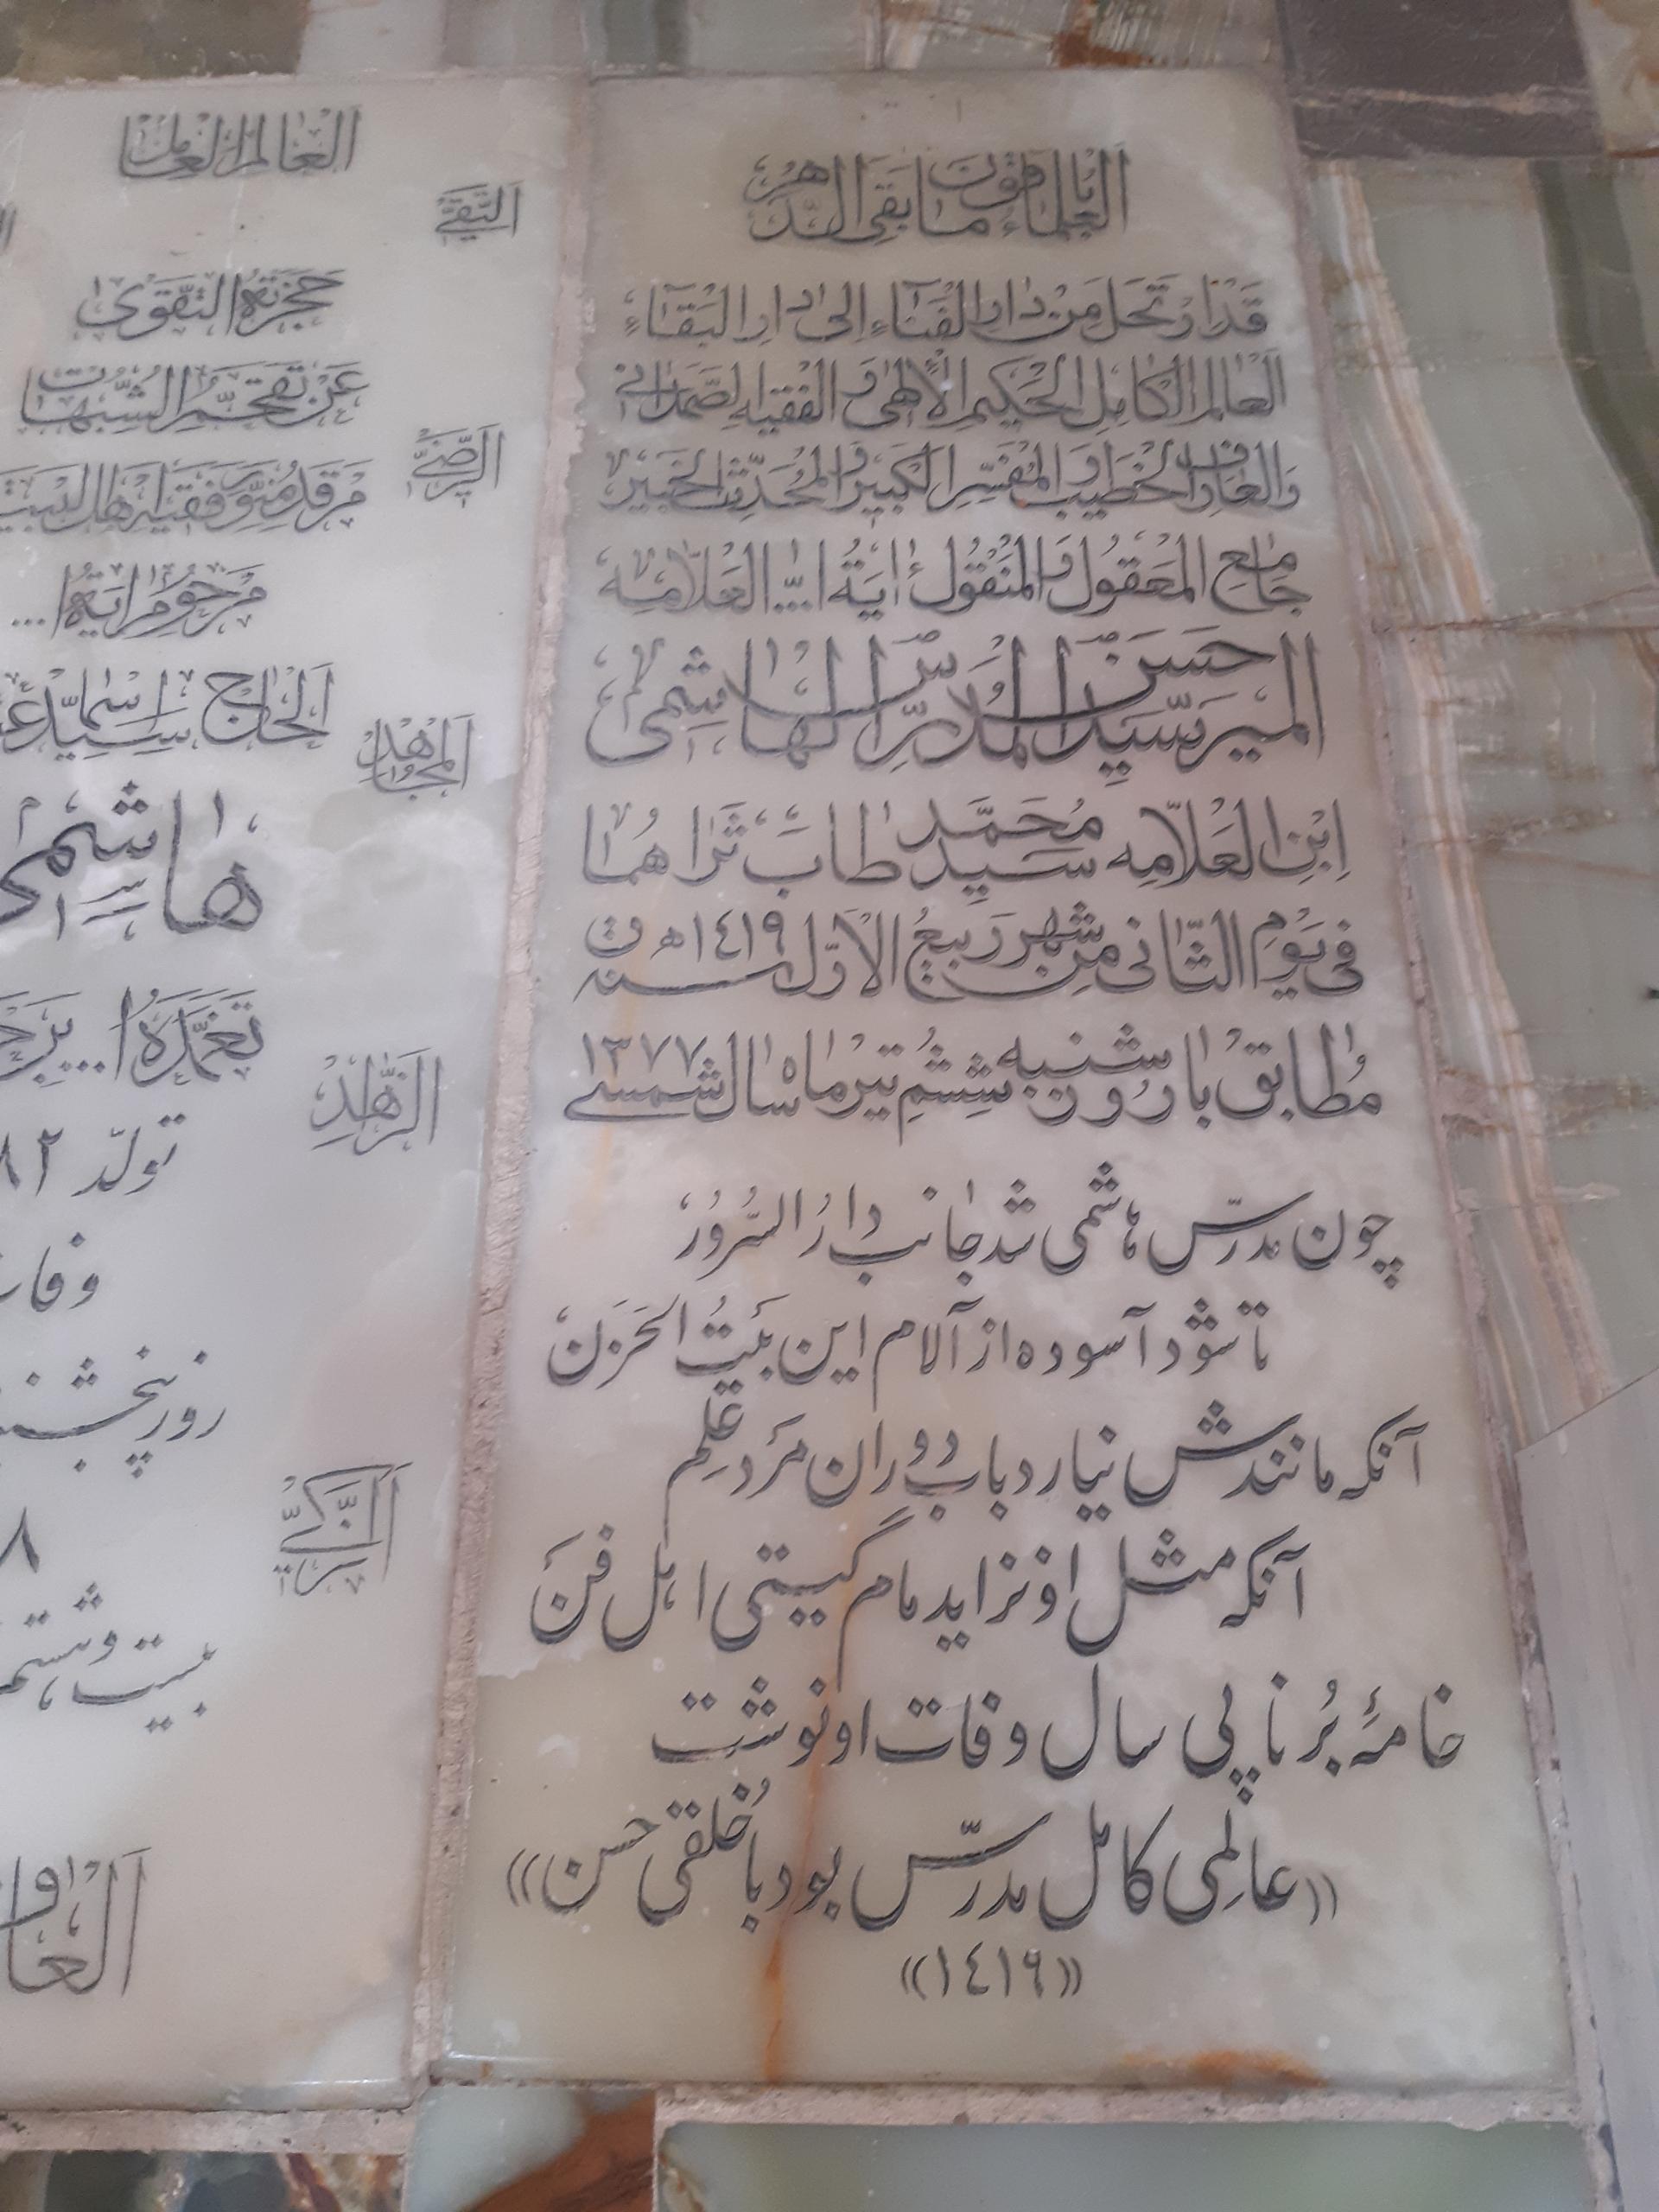 العلماء باقون ما بقی الدهر
قد ارتحل من دار الفناء الی دار البقاء
العالم الکامل الحکیم الالهی و الفقیه الصمدانی
و العارف الخطیب و المفسّر الکبیر و المحدّث الخبیر
جامع المعقول و المنقول آیة ا... العلامه
المیر سیّد حسن المدرّس الهاشمی
ابن العلّامه سید محمّد طاب ثراهما
فی یوم الثانی من شهر ربیع الاوّل سنه ١٤١٩ ه ق
مطابق با روز شنبه ششم تیر ماه سال ١٣٧٧ شمسی
چون مدرّس هاشمی شد جانب دارُ السّرور
تا شود آسوده از آلام این بیتُ الحَزَن
آنکه مانندش نیارد باب دوران مرد علم
آنکه مثل او نزاید مام گیتی اهل فن
خامهٔ بُرنا پی سال وفات او نوشت
((عالمی کامل مدرّس بود با خُلقی حسن))
((١٤١٩))
العالم العامل
التقی
حجزته التقوی
عن تقحم الشبهات
الرضی
مرقد منور فقیه اهل البیت
مرحوم آیة ا...
الحاج سید اسما
المجاهد
هاشمی
تغمّده ا... برح
الزاهد
تولّد
وفات
روز پنجشنبه
الزکی
بیست و هشتم